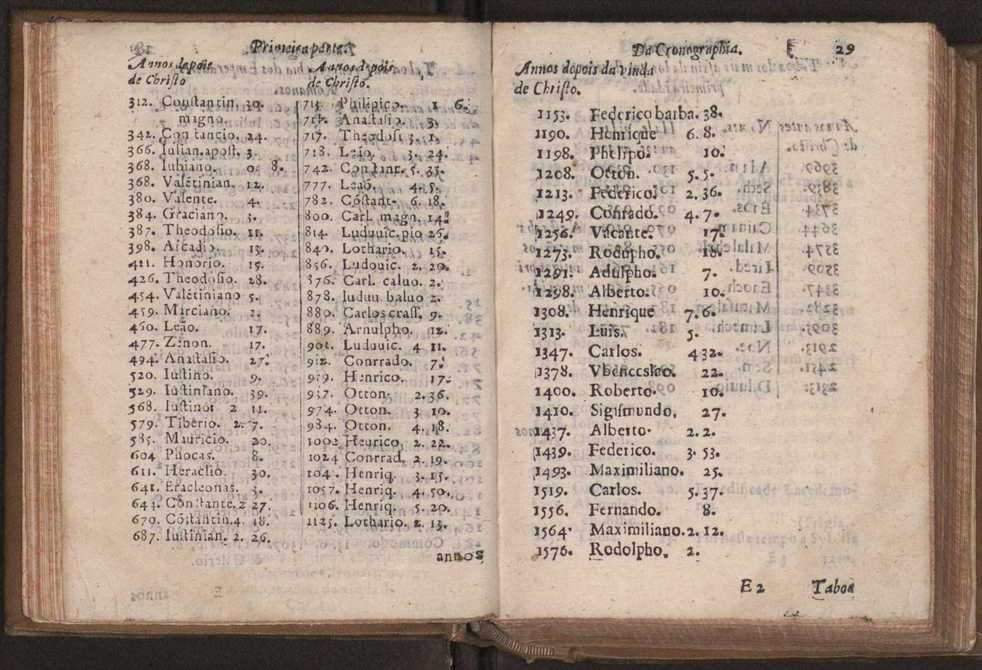 Primeira parte.
Annos depois
de Christo
312. Constantin. 30.
magno.
342. Constancio. 24.
366. Iulian. apost. 3.
368. Iubiano. 0 8.
368. Valẽtinian. 12.
380. Valente. 4.
384. Graciano. 3.
387. Theodosio. 11.
398. Arcadio. 13.
411. Honorio. 15.
426. Theodosio. 28.
454. Valẽtiniano 5.
459. Marciano. 1.
460. Leão. 17.
477. Zenon. 17.
494. Anastasio. 27.
520. Iustino. 9.
529. Iustiniano. 39.
568. Iustinor 2 11.
579. Tiberio. 2. 7.
585. Mauricio. 20.
604 Phocas. 8.
611. Heraclio. 30.
641. Eracleonas. 3.
643. Constante. 2 27.
670. Cõstãtin. 4. 18.
687. Iustinian. 2. 26.
Annos depois
de Christo.
713. Philipico. 1 6.
715. Anastasio. 3.
717. Theodosi 3. 1.
718. Leão. 3. 24.
742. Constant. 5. 35.
777. Leaõ. 4. 5.
782. Cõstant. 6. 18.
800. Carl. magn. 14.
814. Luduuic. pio 26.
840. Lothario. 15.
856. Ludouic. 2. 20.
876. Carl. caluo. 2.
878. luduu. baluo 2.
880. Carlos crass. 9.
889. Arnulpho. 12.
901. Luduuic. 4 11.
912. Conrrado. 7.
919. Henrico. 17.
937. Otton. 2. 36.
974. Otton. 3 10.
984. Otton. 4. 18.
1002 Henrico. 2. 22.
1024 Conrrad. 2. 19.
104. Henriq. 3. 15.
1057. Henriq. 4. 50.
1106. Henriq. 5. 20.
1125. Lothario. 2. 13.
annos
Da Cronographia. 29
Annos depois da vinda
de Christo.
1153. Federico barba. 38.
1190. Henrique 6. 8.
1198. Phelipo. 10.
1208. Otton. 5. 5.
1213. Federico. 2. 36.
1249. Conrado. 4. 7.
1256. Vacante. 17.
1273. Rodolpho. 18.
1291. Adulpho. 7.
1298. Alberto. 10.
1308. Henrique 7. 6.
1313. Luis. 5.
1347. Carlos. 4 32.
1378. Vbenceslao. 22.
1400. Roberto. 10.
1410. Sigismundo. 27.
1437. Alberto. 2. 2.
1439. Federico. 3. 53.
1493. Maximiliano. 25.
1519. Carlos. 5. 37.
1556. Fernando. 8.
1564. Maximiliano. 2. 12.
1576. Rodolpho. 2.
E 2 Taboa